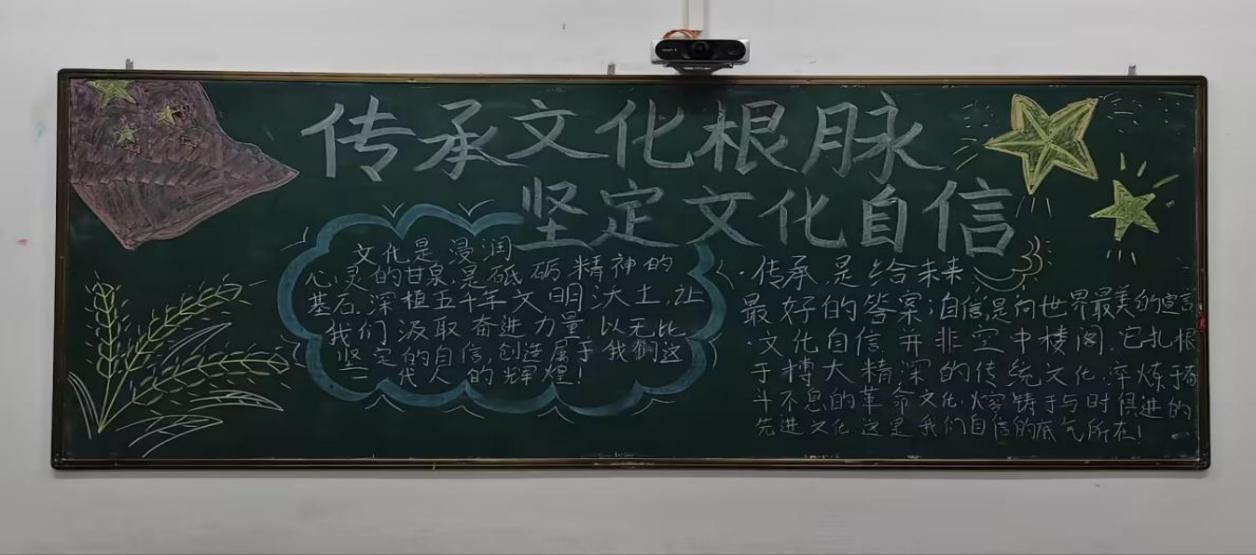 传承文化根脉
坚定文化自信
文化是浸润
心灵的甘泉,是砥砺精神的
基石.深植五千年文明沃土,让
我们汲取奋进力量,以无比
坚定的自信,创造属于我们这
一代人的辉煌!
·传承,是给未来
最好的答案;自信,是向世界最美的宣言
·文化自信,并非空中楼阁.它扎根
于博大精深的传统文化.淬炼于奋
斗不息的革命文化.熔铸于与时俱进的
先进文化.这是我们自信的底气所在!